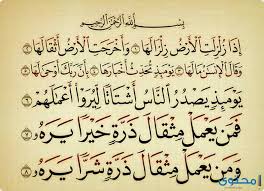 بِسْمِ اللَّهِ الرَّحْمَنِ الرَّحِيمِ
إِذَا زُلْزِلَتِ الْأَرْضُ زِلْزَالَهَا ۝١ وَأَخْرَجَتِ الْأَرْضُ أَثْقَالَهَا ۝٢
وَقَالَ الْإِنسَٰنُ مَا لَهَا ۝٣ يَوْمَئِذٍ تُحَدِّثُ أَخْبَارَهَا ۝٤ بِأَنَّ رَبَّكَ أَوْحَىٰ لَهَا ۝٥
يَوْمَئِذٍ يَصْدُرُ النَّاسُ أَشْتَاتًا لِّيُرَوْا أَعْمَٰلَهُمْ ۝٦
فَمَن يَعْمَلْ مِثْقَالَ ذَرَّةٍ خَيْرًا يَرَهُ ۝٧
وَمَن يَعْمَلْ مِثْقَالَ ذَرَّةٍ شَرًّا يَرَهُ ۝٨
محتوى